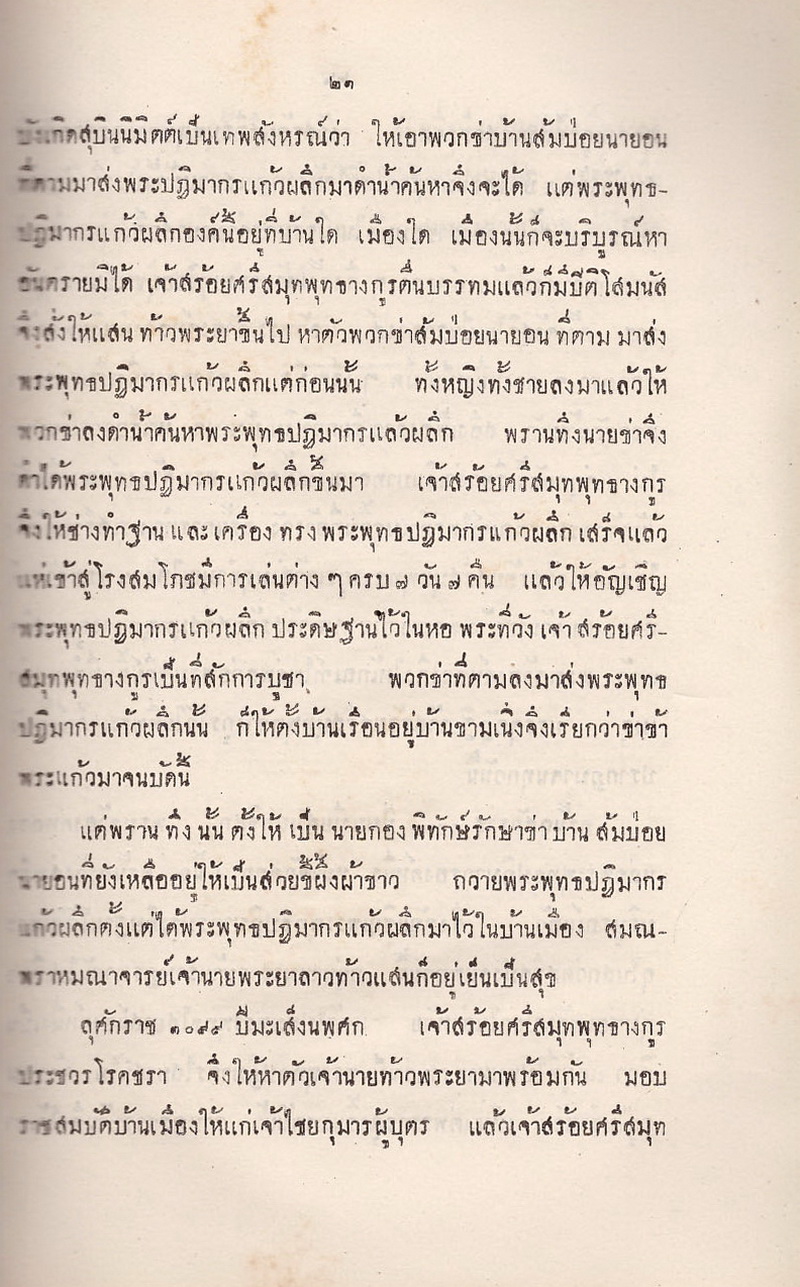 ๒๓
สุบินนิมิตต์เป็นเทพสังหรณ์ว่า ให้เอาพวกข่าบ้านส้มป่อยนายอน
มาส่งพระปฏิมากรแก้วผลึกมาดำน้ำค้นหาจึงจะได้ แต่พระพุทธ-
ปฏิมากรแก้วผลึกองค์นี้อยู่ที่บ้านใด เมืองใด เมืองนั้นก็จะบริบูรณ์หา
อันตรายมิได้ เจ้าสร้อยศรีสมุทพุทธางกูรตื่นบรรทมแล้วก็มีปีติโสมนัส
สั่งให้แสน ท้าวพระยาขึ้นไป หาตัวพวกข่าส้มป่อยนายอน ที่ตาม มาส่ง
พระพุทธปฏิมากรแก้วผลึกแต่ก่อนนั้น ทั้งหญิงทั้งชายลงมาแล้วให้
พวกข่าลงดำน้ำค้นหาพระพุทธปฏิมากรแก้วผลึก พรานทึงนายข่าจึ่ง
ดำได้พระพุทธปฏิมากรแก้วผลึกขึ้นมา เจ้าสร้อยศรีสมุทพุทธางกูร
จึงให้ช่างทำฐาน และ เครื่อง ทรง พระพุทธปฏิมากรแก้วผลึก เสร็จแล้ว
เข้าสู่โรงสมโภชมีการเล่นต่าง ๆ ครบ ๗ วัน ๗ คืน แล้วให้อัญเชิญ
พระพุทธปฏิมากรแก้วผลึก ประดิษฐานไว้ในหอ พระที่วัง เจ้าสร้อยศรี-
สมุทพุทธางกูรเป็นที่สักการบูชา พวกข่าที่ตามลงมาส่งพระพุทธ
ปฏิมากรแก้วผลึกนั้น ก็ให้ตั้งบ้านเรือนอยู่บ้านขามเนิ้งจึ่งเรียกว่าข่าข้า
พระแก้วมาจนบัดนี้
แต่พราน ทึง นั้น ตั้งให้ เป็น นายกอง พิทักษ์รักษาข่า บ้าน ส้มป่อย
นายอนที่ยังเหลืออยู่ให้เป็นส่วยขี้ผึ้งผ้าขาว ถวายพระพุทธปฏิมากร
แก้วผลึกตั้งแต่ได้พระพุทธปฏิมากรแก้วผลึกมาไว้ในบ้านเมือง สมณ-
พราหมณาจารย์เจ้านายพระยาลาวท้าวแสนก็อยู่เย็นเป็นสุข
ลุศักราช ๑๐๙๙ ปีมะเส็งนพศก เจ้าสร้อยศรีสมุทพุทธางกูร
ประชวรโรคชรา จึ่งให้หาตัวเจ้านายท้าวพระยามาพร้อมกัน มอบ
ราชสมบัติบ้านเมืองให้แก่เจ้าไชยกุมารผู้บุตร แล้วเจ้าสร้อยศรีสมุท